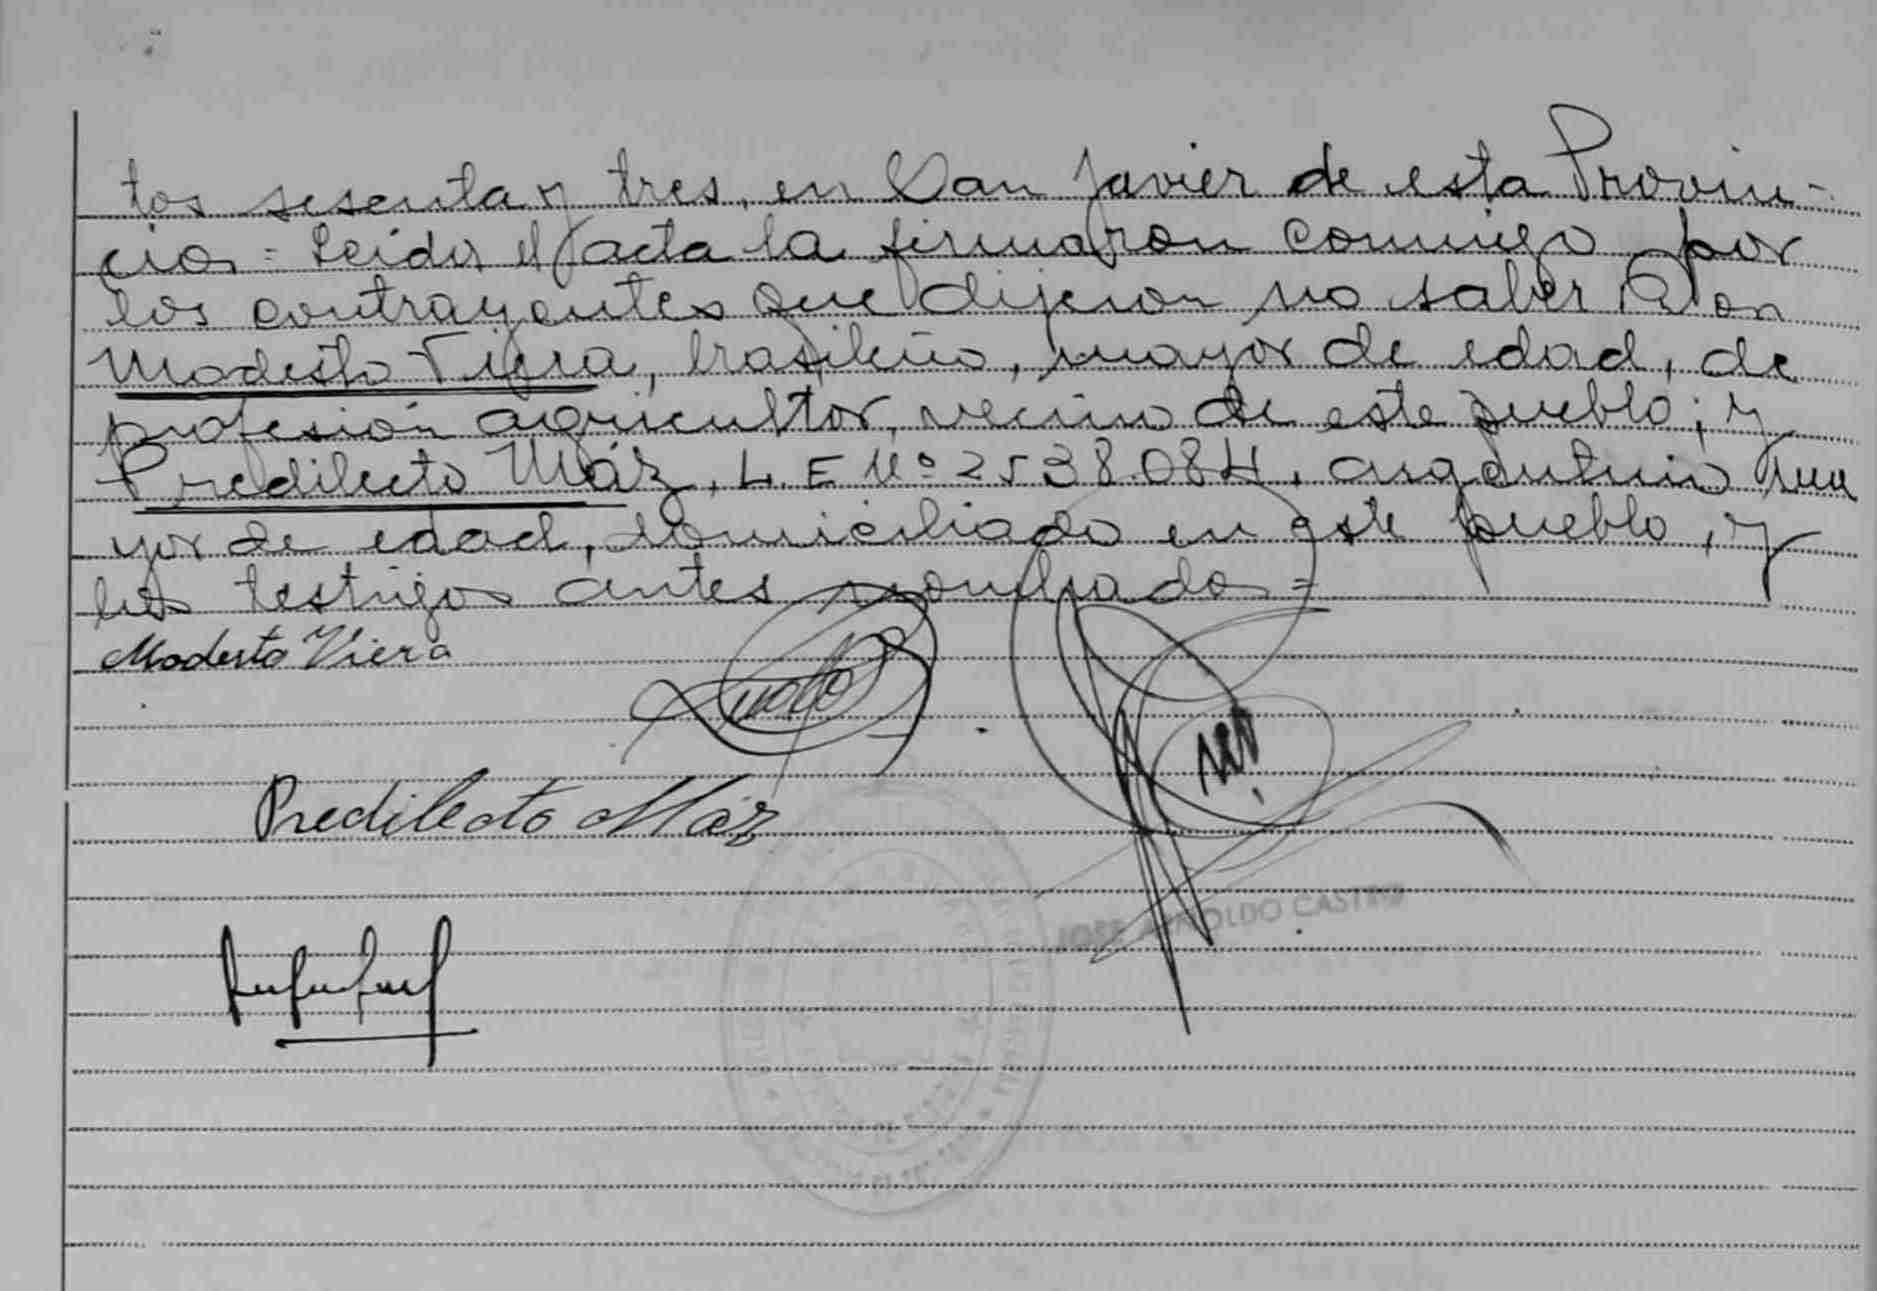 tos sesenta y tres, en San Javier de esta Provin-
cia = Leida el acta la firmaron conmigo por
los contrayentes que dijeron no saber Don
Modesto Viera, brasileño, mayor de edad, de
profesión agricultor, vecino de este pueblo; y
Predilecto Máz, L. E Nº 2538.084, argentino ma
yor de edad, domiciliado en este pueblo, y
los testigos antes nombrados =
Modesto Viera
Predilecto Máz
JOSE ARNOLDO CASTRO